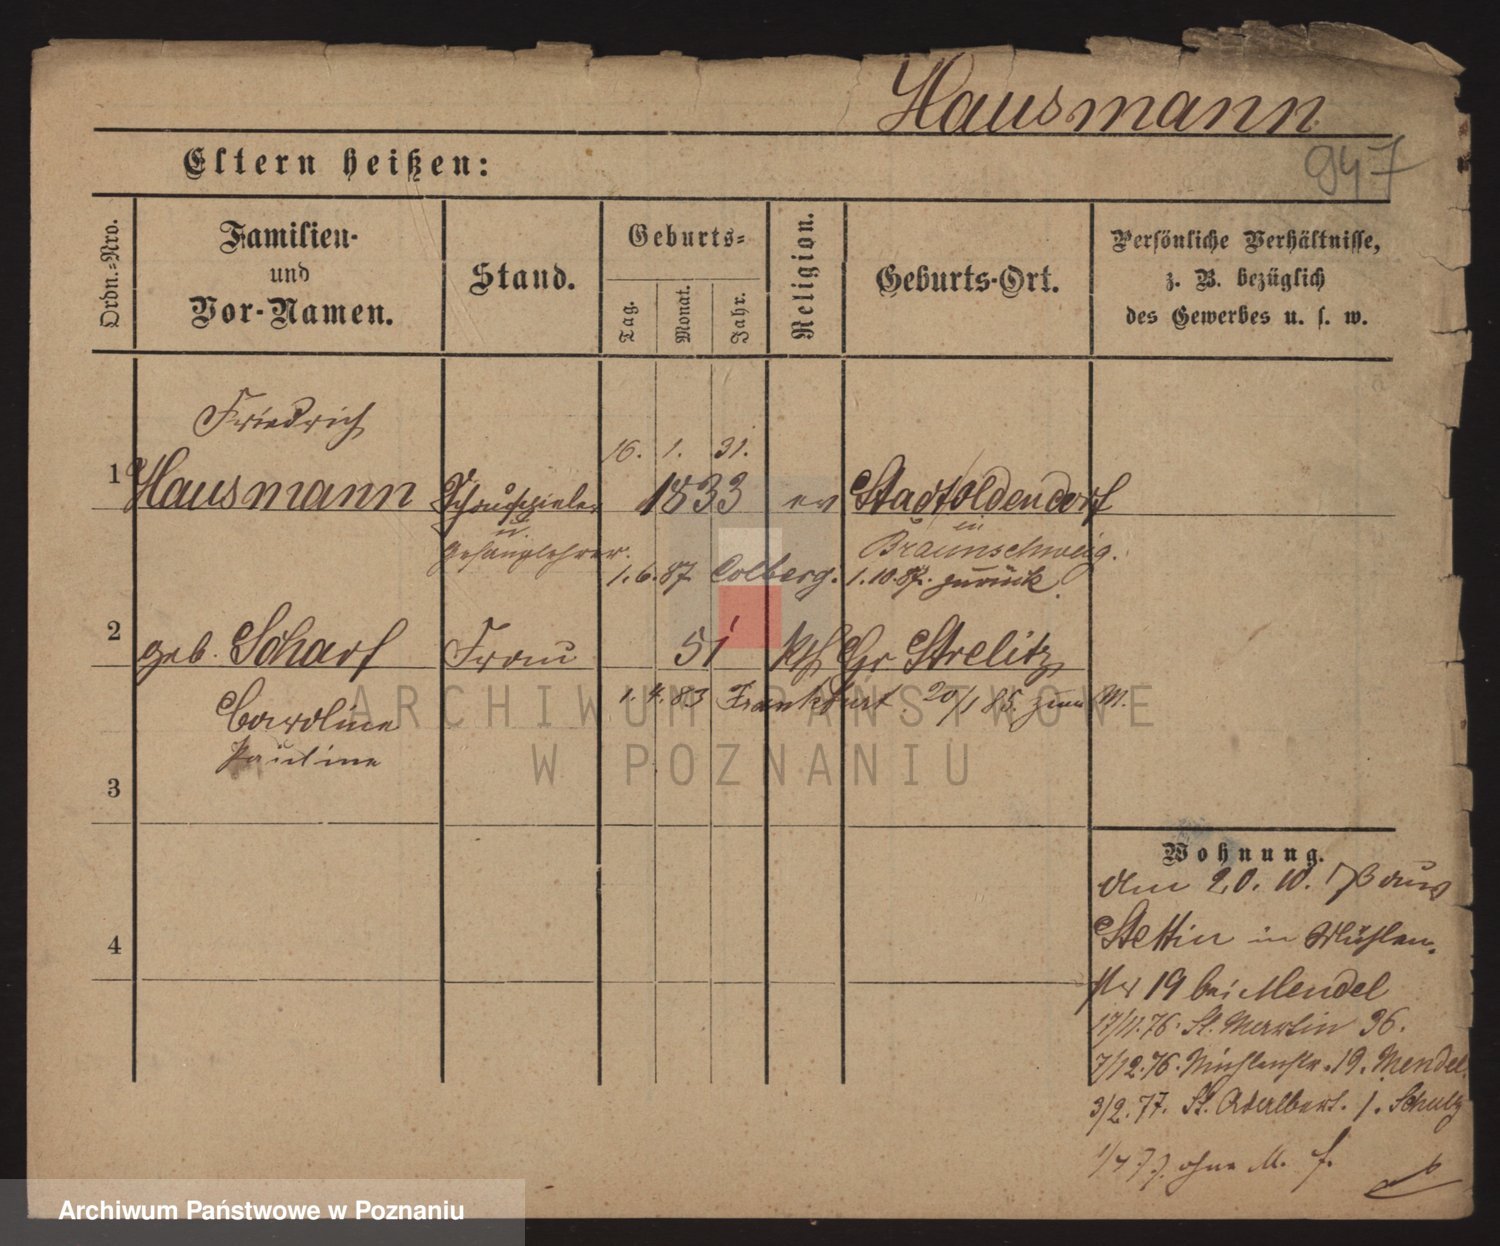 Hausmann
947
Eltern heißen:
Ordn.=Nro.
Familien-
und
Vor-Namen.
Stand.
Geburts=
Tag.
Monat.
Jahr.
Religion.
Geburts-Ort.
Persönliche Verhältnisse,
z. B. bezüglich
des Gewerbes u. s. w.
Friedrich
16. 1. 31.
1 Hausmann Schauspieler 1833 ev Stadtoldendorf
u. in
Gesanglehrer. Braunschweig.
1.6.87 Colberg. 1.10.87. zurück.
2 geb. Scharf Frau 51 kth Gr Strelitz
1.4.83 Frankfurt. 20/1 85. zum M.
Caroline
Pauline
3
4
Wohnung.
den 20. 10. 76 aus
Stettin in Mühlen-
str 19 bei Mendel
17/11.76. St. Martin 36.
7/12.76. Mühlenstr. 19. Mendel
3/2.77. St. Adalbert. 1. Schulz
1/4 77. ohne M. f.
ARCHIWUM PAŃSTWOWE
W POZNANIU
Archiwum Państwowe w Poznaniu